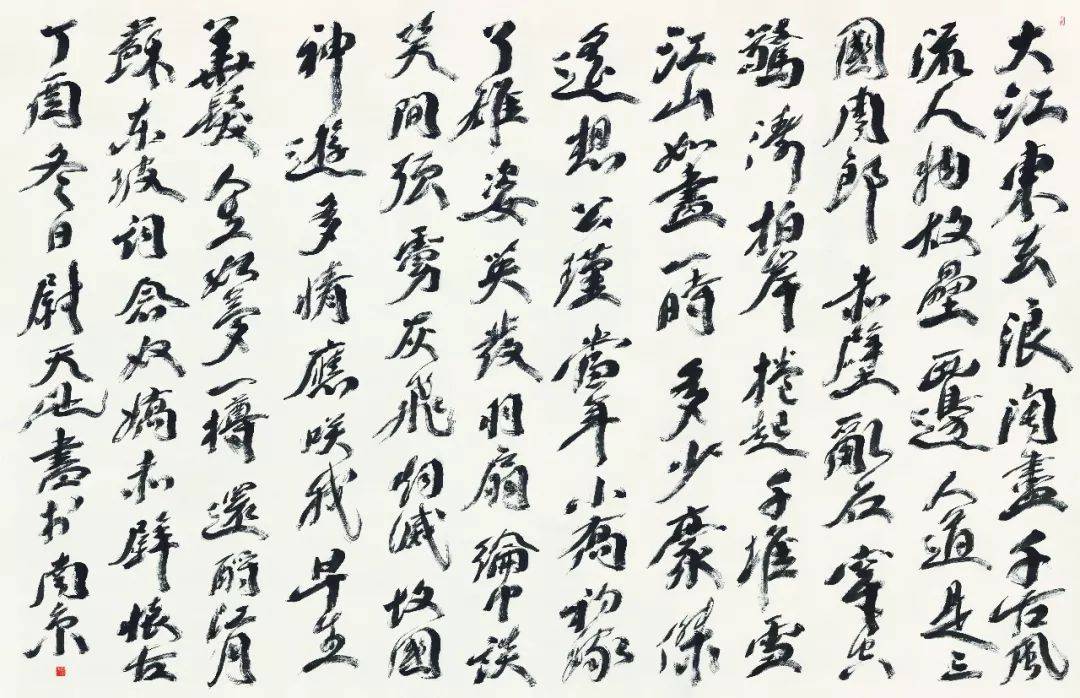 大江東去浪淘盡千古風
流人物故壘西邊人道是三
國周郎赤壁亂石穿空
驚濤拍岸捲起千堆雪
江山如畫一時多少豪傑
遙想公瑾當年小喬初嫁
了雄姿英發羽扇綸巾談
笑間強虜灰飛烟滅故國
神遊多情應咲我早生
華髮人生如夢一樽還酹江月
蘇東坡詞念奴嬌赤壁懷古
丁酉冬日尉天池書於南京